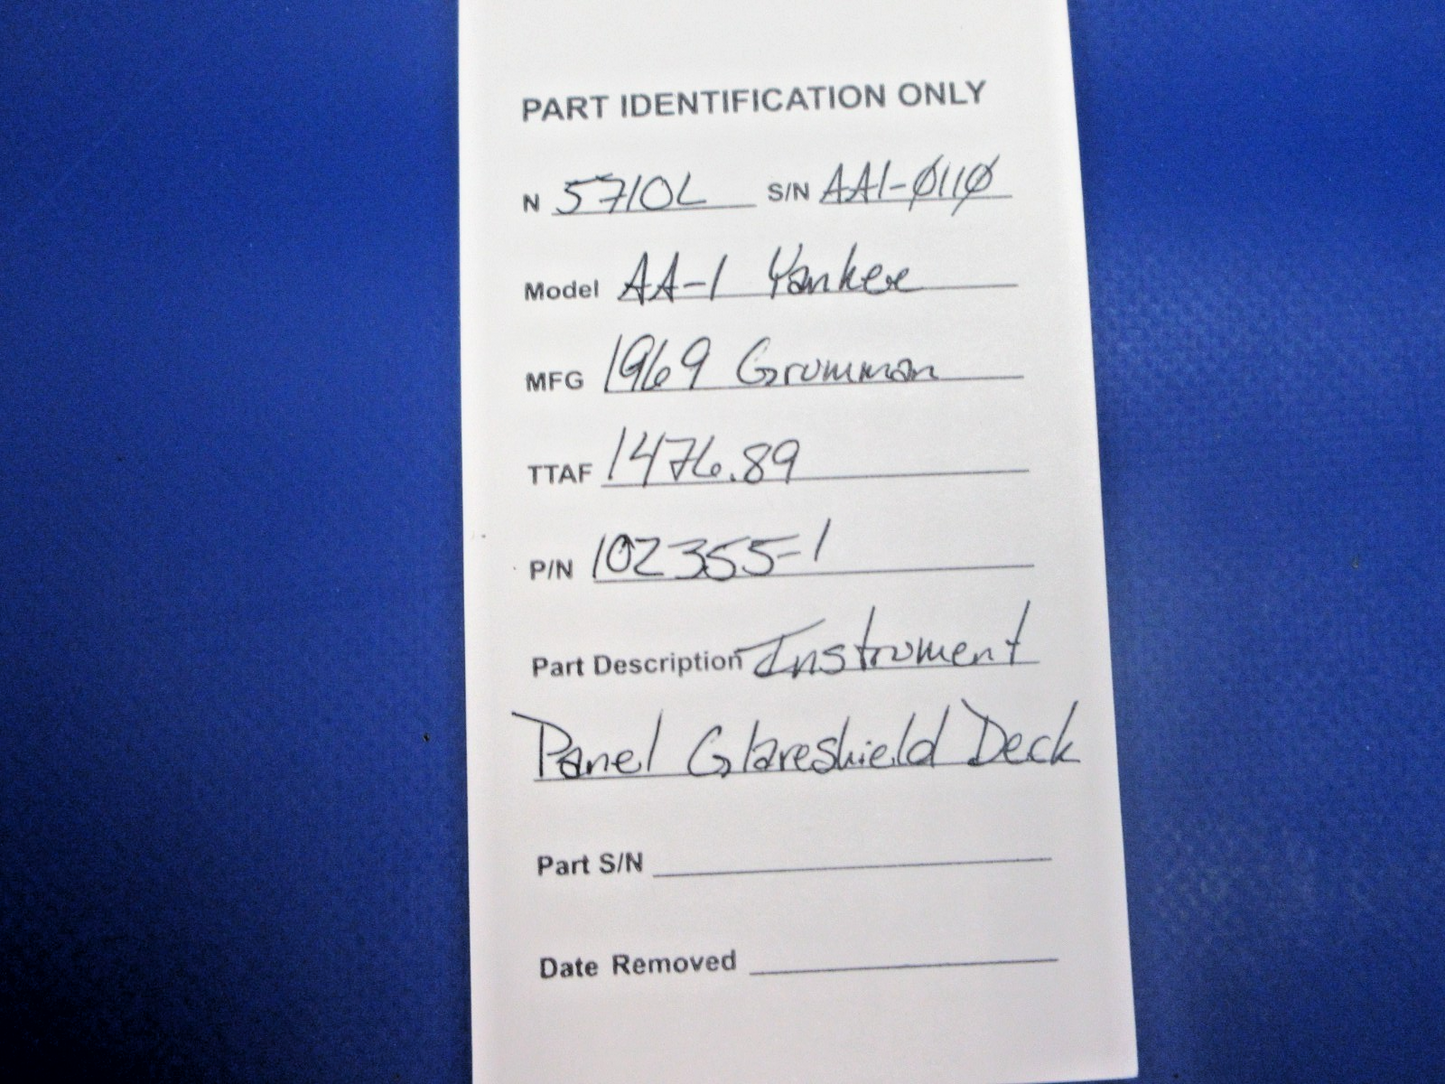 PART IDENTIFICATION ONLY
N 5710L S/N AA1-0110
Model AA-1 Yankee
MFG 1969 Grumman
TTAF 1476.89
P/N 102355-1
Part Description Instrument
Panel Glareshield Deck
Part S/N
Date Removed